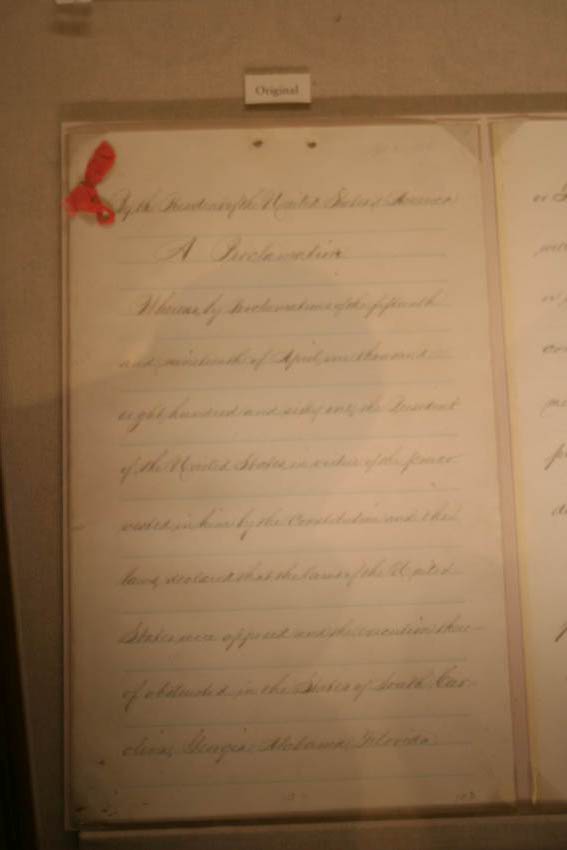 Original
By the President of the United States of America
A Proclamation
Whereas, by Proclamations of the fifteenth
and nineteenth of April, one thousand
eight hundred and sixty one, the President
of the United States, in virtue of the power
vested in him by the Constitution and the
laws, declared that the laws of the United
States were opposed and the execution there-
of obstructed in the States of South Car-
olina, Georgia, Alabama, Florida,